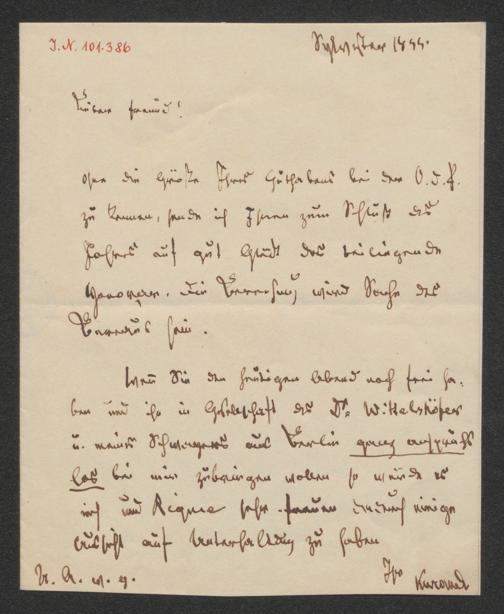 I.N. 101.386
Sylvester 1888.
Lieber Freund!
ohne die Größe Ihres Guthabens bei der O.d.L.
zu kennen, sende ich Ihnen zum Schluß des
Jahres auf gut Glück das beiliegende
Honorar. Die Verrechnung wird Sache des
Bureaus sein.
Wenn Sie den heutigen Abend noch frei ha-
ben und ihn in Gesellschaft des Dr. Wittelshöfer
u. meines Schwagers aus Berlin ganz anspruchs
los bei mir zubringen wollen so würde es
mich und sehr freuen dadurch einige
Aussicht auf Unterhaltung zu haben
Ihr
U. A. w. g.